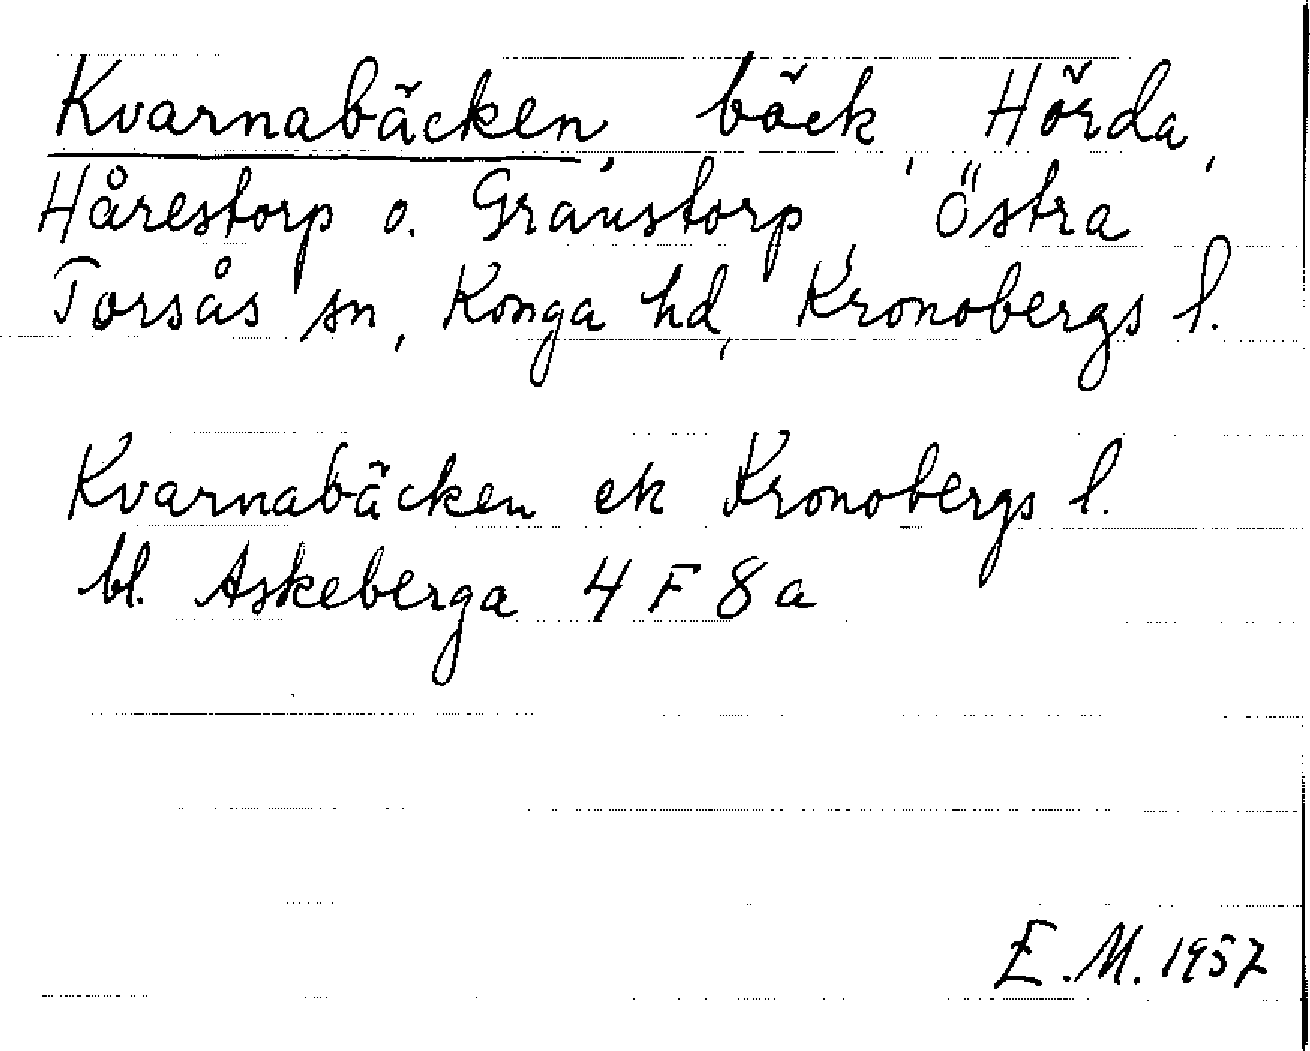 Kvarnabäcken, bäck, Hörda,
Hårestorp o. Granstorp, Östra
Torsås sn, Konga hd, Kronobergs l.
Kvarnabäcken ek Kronobergs l.
bl. Askeberga 4 F 8 a
E.M. 1957